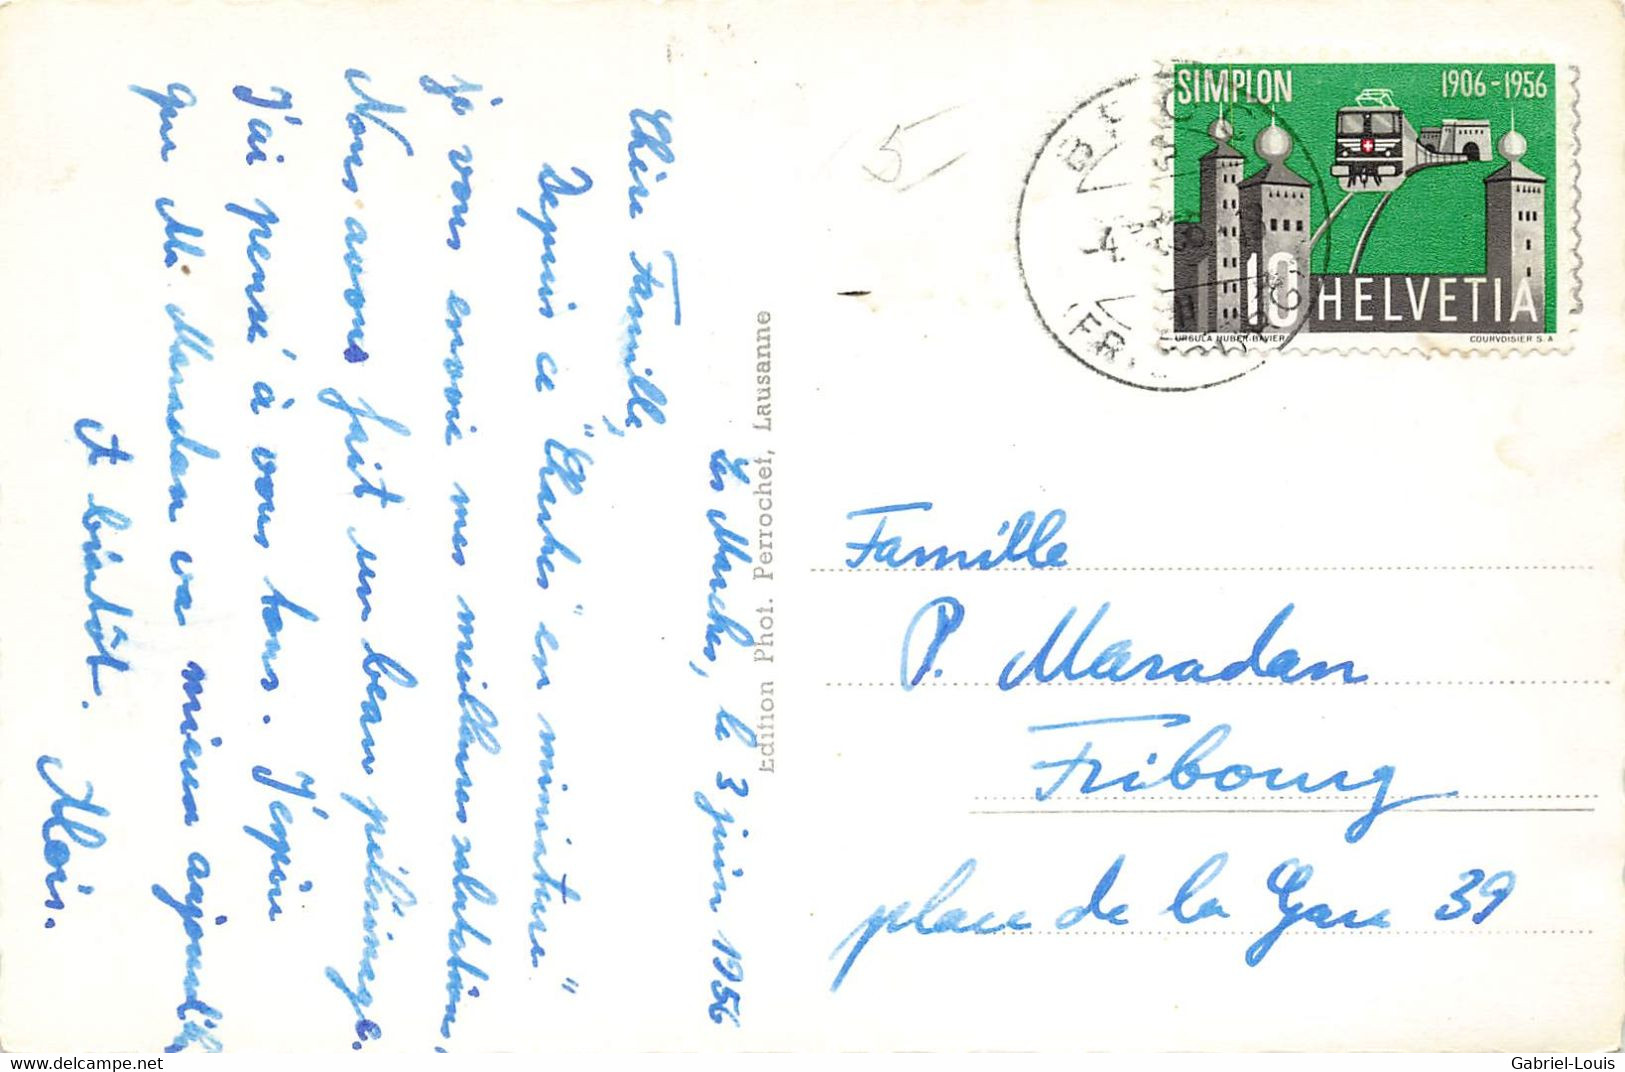 Les Marches, le 3 juin 1956
Chère Famille,
Depuis ce "Charles" en miniature"
je vous envoie mes meilleures salutations,
Nous avons fait un beau pélérinage.
J'ai pensé à vous tous. J'espère
que Mr Maradan va mieux aujourd'h
A bientôt.
Aloïs.
Edition Phot. Perrochet, Lausanne
5
SIMPLON 1906-1956
10 HELVETIA
URSULA HUBER-BAVIER COURVOISIER S. A
BROC
(FR
Famille
P. Maradan
Fribourg
place de la Gare 39
www.delcampe.net
Gabriel-Louis